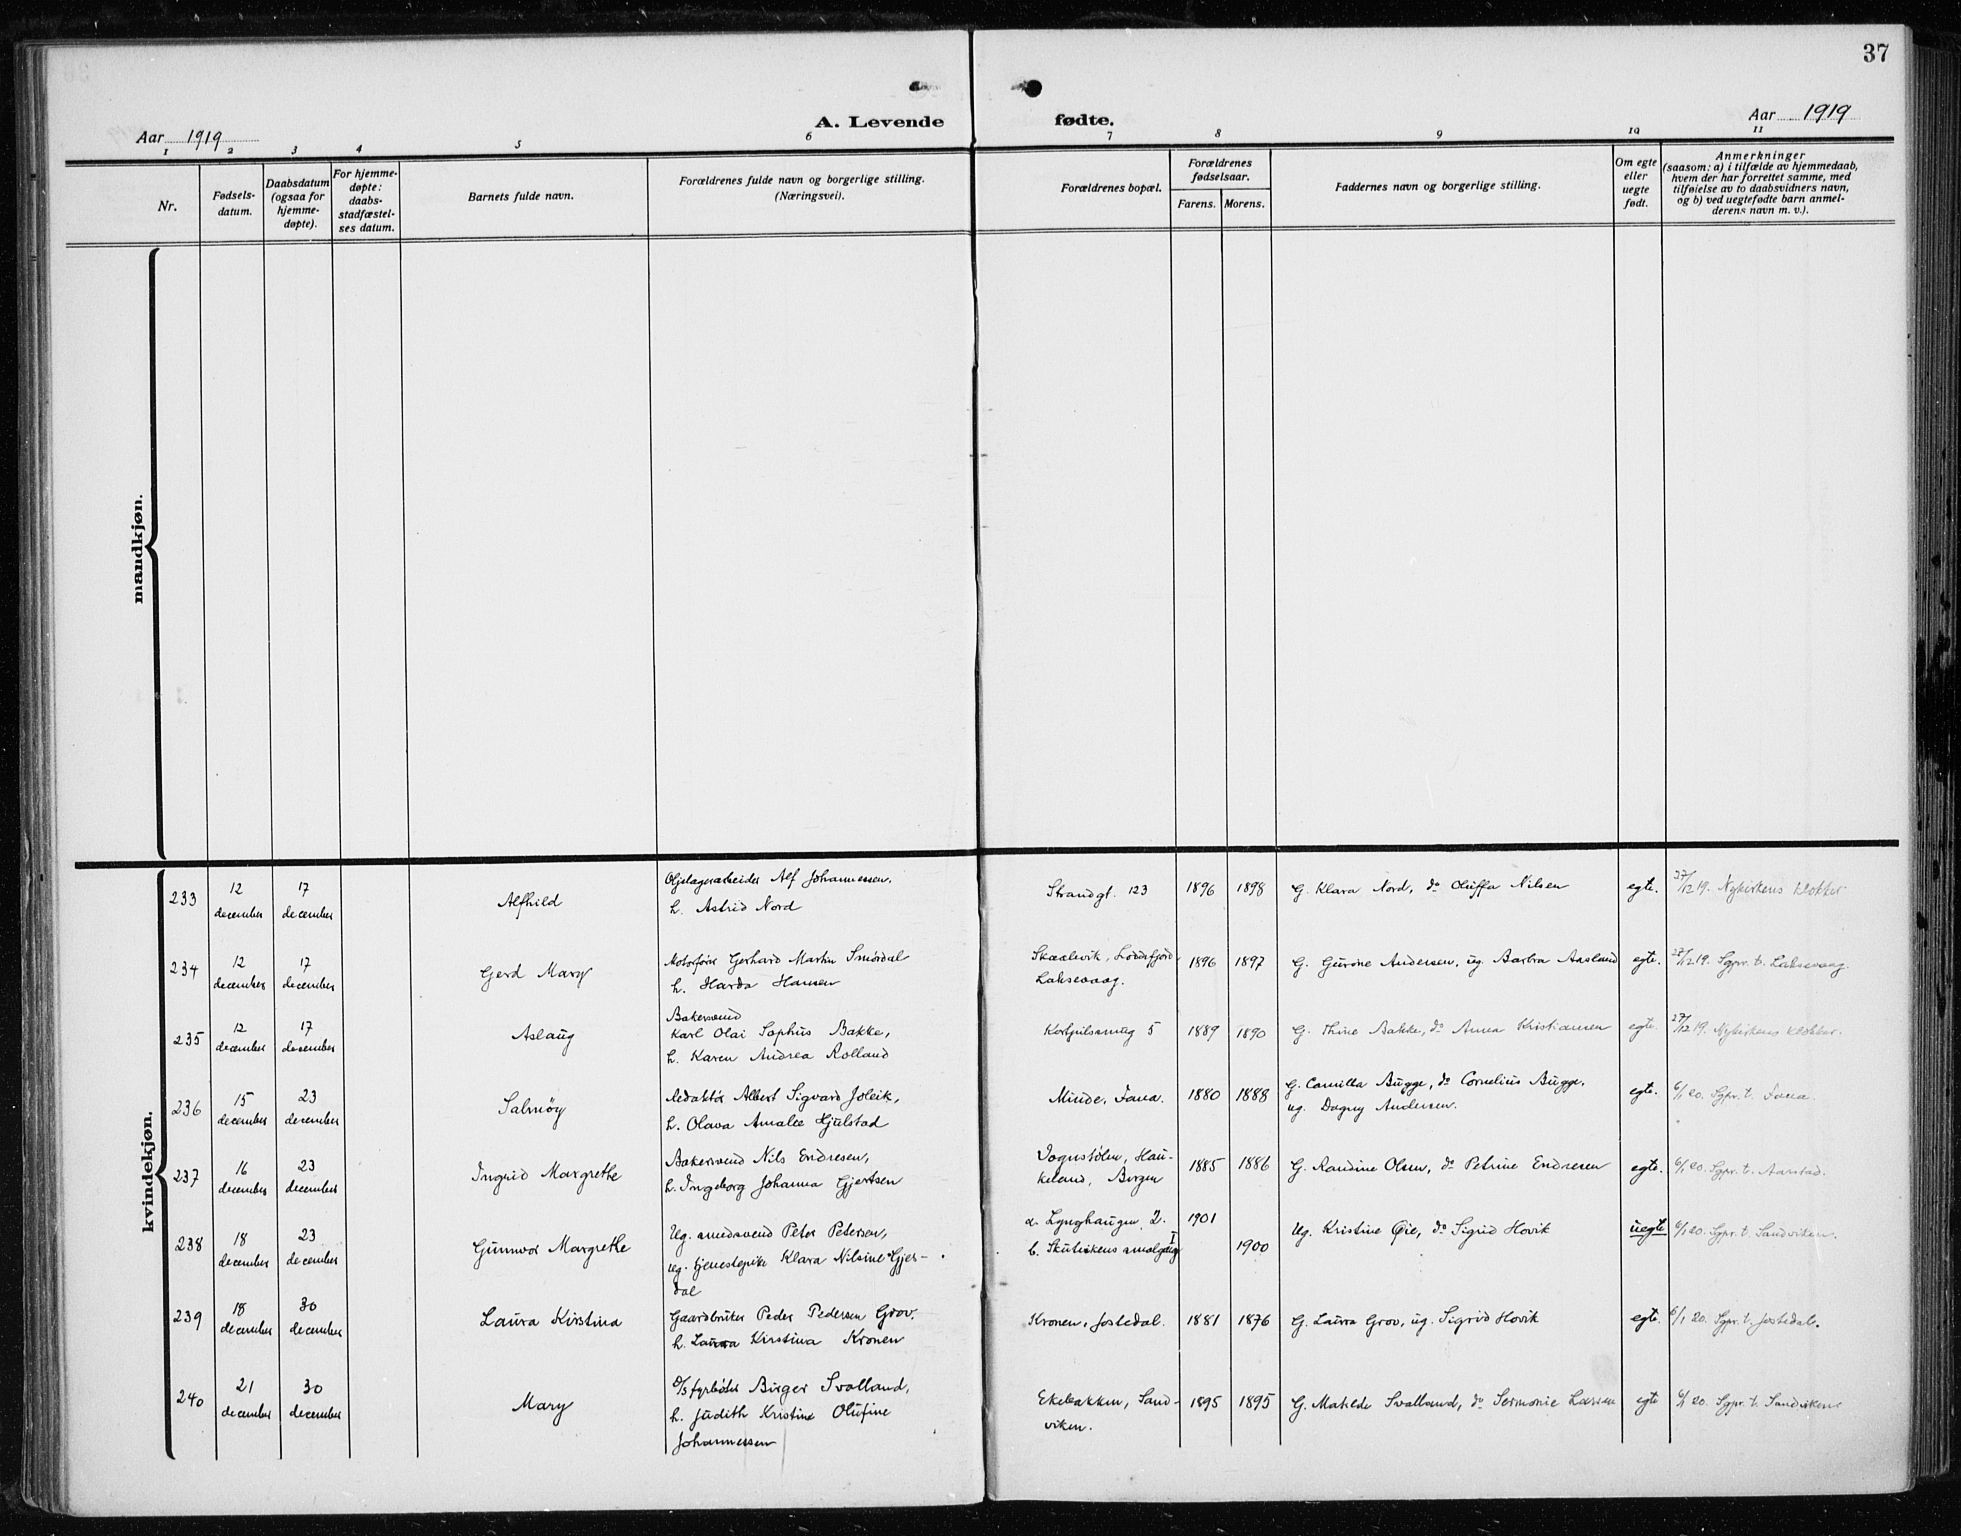 37
Aar 1919
A. Levende fødte.
Aar 1919
1 2 3 4 5 6 7 8 9 10 11
Nr.
Fødsels-
datum.
Daabsdatum
(ogsaa for
hjemme-
døpte).
For hjemme-
døpte:
daabs-
stadfæstel-
ses datum.
Barnets fulde navn.
Forældrenes fulde navn og borgerlige stilling.
(Næringsvei).
Forældrenes bopæl.
Forældrenes
fødselsaar.
Farens. Morens.
Faddernes navn og borgerlige stilling.
Om egte
eller
uegte
født.
Anmerkninger
(saasom: a) i tilfælde av hjemmedaab,
hvem der har forrettet samme, med
tilføielse av to daabsvidners navn,
og b) ved uegtefødte barn anmel-
derens navn m. v.).
mandkjøn.
kvindekjøn.
233
12
december
17
december
Alfhild
Alf Johannessen.
h. Astrid Nord
Strandgt. 123
1896 1898
G. Klara Nord, do Oluffa Nilsen
egte.
27/12 19. Nykirkens klokker.
234
12
december
17
december
Gerd Mary
Gerhard Martin Smørdal
h. Harda Hansen
Skaalevik,
Laksevaag.
1896 1897
G. Gurine Andersen, ug. Barbra Aasland
egte.
27/12 19. Sgpr. t. Laksevaag.
235
12
december
17
december
Aslaug
Bakersvend
Karl Olai Sophus Bakke,
h. Karen Andrea Rolland
Korspilsmug 5
1889 1890
G. Thine Bakke, do Anna Kristiansen
egte.
27/12 19. Nykirkens klokker.
236
15
december
23
december
Salmøy
Redaktør Albert Sigvard Joleik,
h. Olava Amalie Hjulstad
Minde, Fana.
1880 1888
G. Camilla Bugge, do Cornelius Bugge,
ug. Dagny Andersen.
egte.
6/1 20. Sgpr. t. Fana.
237
16
december
23
december
Ingrid Margrethe
Bakersvend Nils Endresen,
h. Ingeborg Johanna Gjertsen
Hau-
keland, Bergen
1885 1886
G. Randine Olsen, do Petrine Endresen
egte.
6/1 20. Sgpr. t. Aarstad.
238
18
december
23
december
Gunnvor Margrethe
Ug. smedsvend Peter Petersen,
ug. tjenestepike Klara Nilsine Gjer-
dal
a. Lynghaugen 2.
b. Skutevikens smalgang I
1901
1900
Ug. Kristine Øie, do Sigrid Hovik
uegte
6/1 20. Sgpr. t. Sandviken.
239
18
december
30
december
Laura Kirstina
Gaardbruker Peder Pedersen Grov.
h. Laura Kirstina Kronen
Kronen, Jostedal.
1881 1876
G. Laura Grov, ug. Sigrid Hovik
egte.
6/1 20. Sgpr. t. Jostedal.
240
21
december
30
december
Mary
D/S fyrbøter Birger Svalland,
h. Judith Kristine Olufine
Johannessen
Ekebakken, Sand-
viken.
1895 1895
G. Matilde Svalland, do Sermonie Larsen
egte
6/1 20. Sgpr. t. Sandviken.